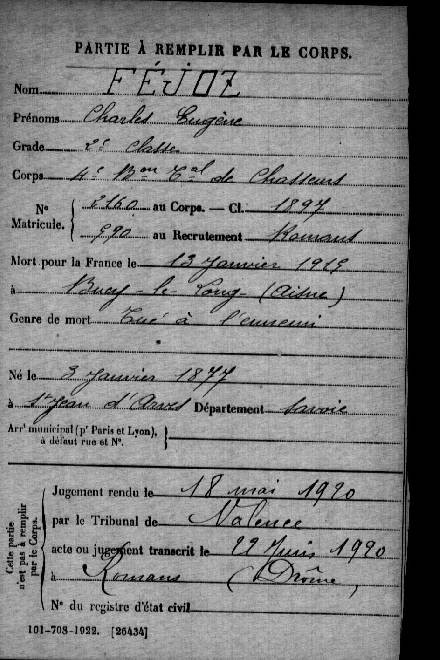 PARTIE À REMPLIR PAR LE CORPS.
Nom FÉJOZ
Prénoms Charles Eugène
Grade 2e classe
Corps 4e Bon Tal de Chasseurs
Nº Matricule. { 2160 au Corps. — Cl. 1897
990 au Recrutement Romans
Mort pour la France le 13 Janvier 1915
à Bucy-le-Long (Aisne)
Genre de mort Tué à l'ennemi
Né le 3 Janvier 1877
à St Jean d'Arves Département Savoie
Arrt municipal (pr Paris et Lyon),
à défaut rue et Nº.
Cette partie n'est pas à remplir par le Corps.
Jugement rendu le 18 mai 1920
par le Tribunal de Valence
acte ou jugement transcrit le 22 Juin 1920
à Romans (Drôme)
Nº du registre d'état civil
101-708-1922. [26434]